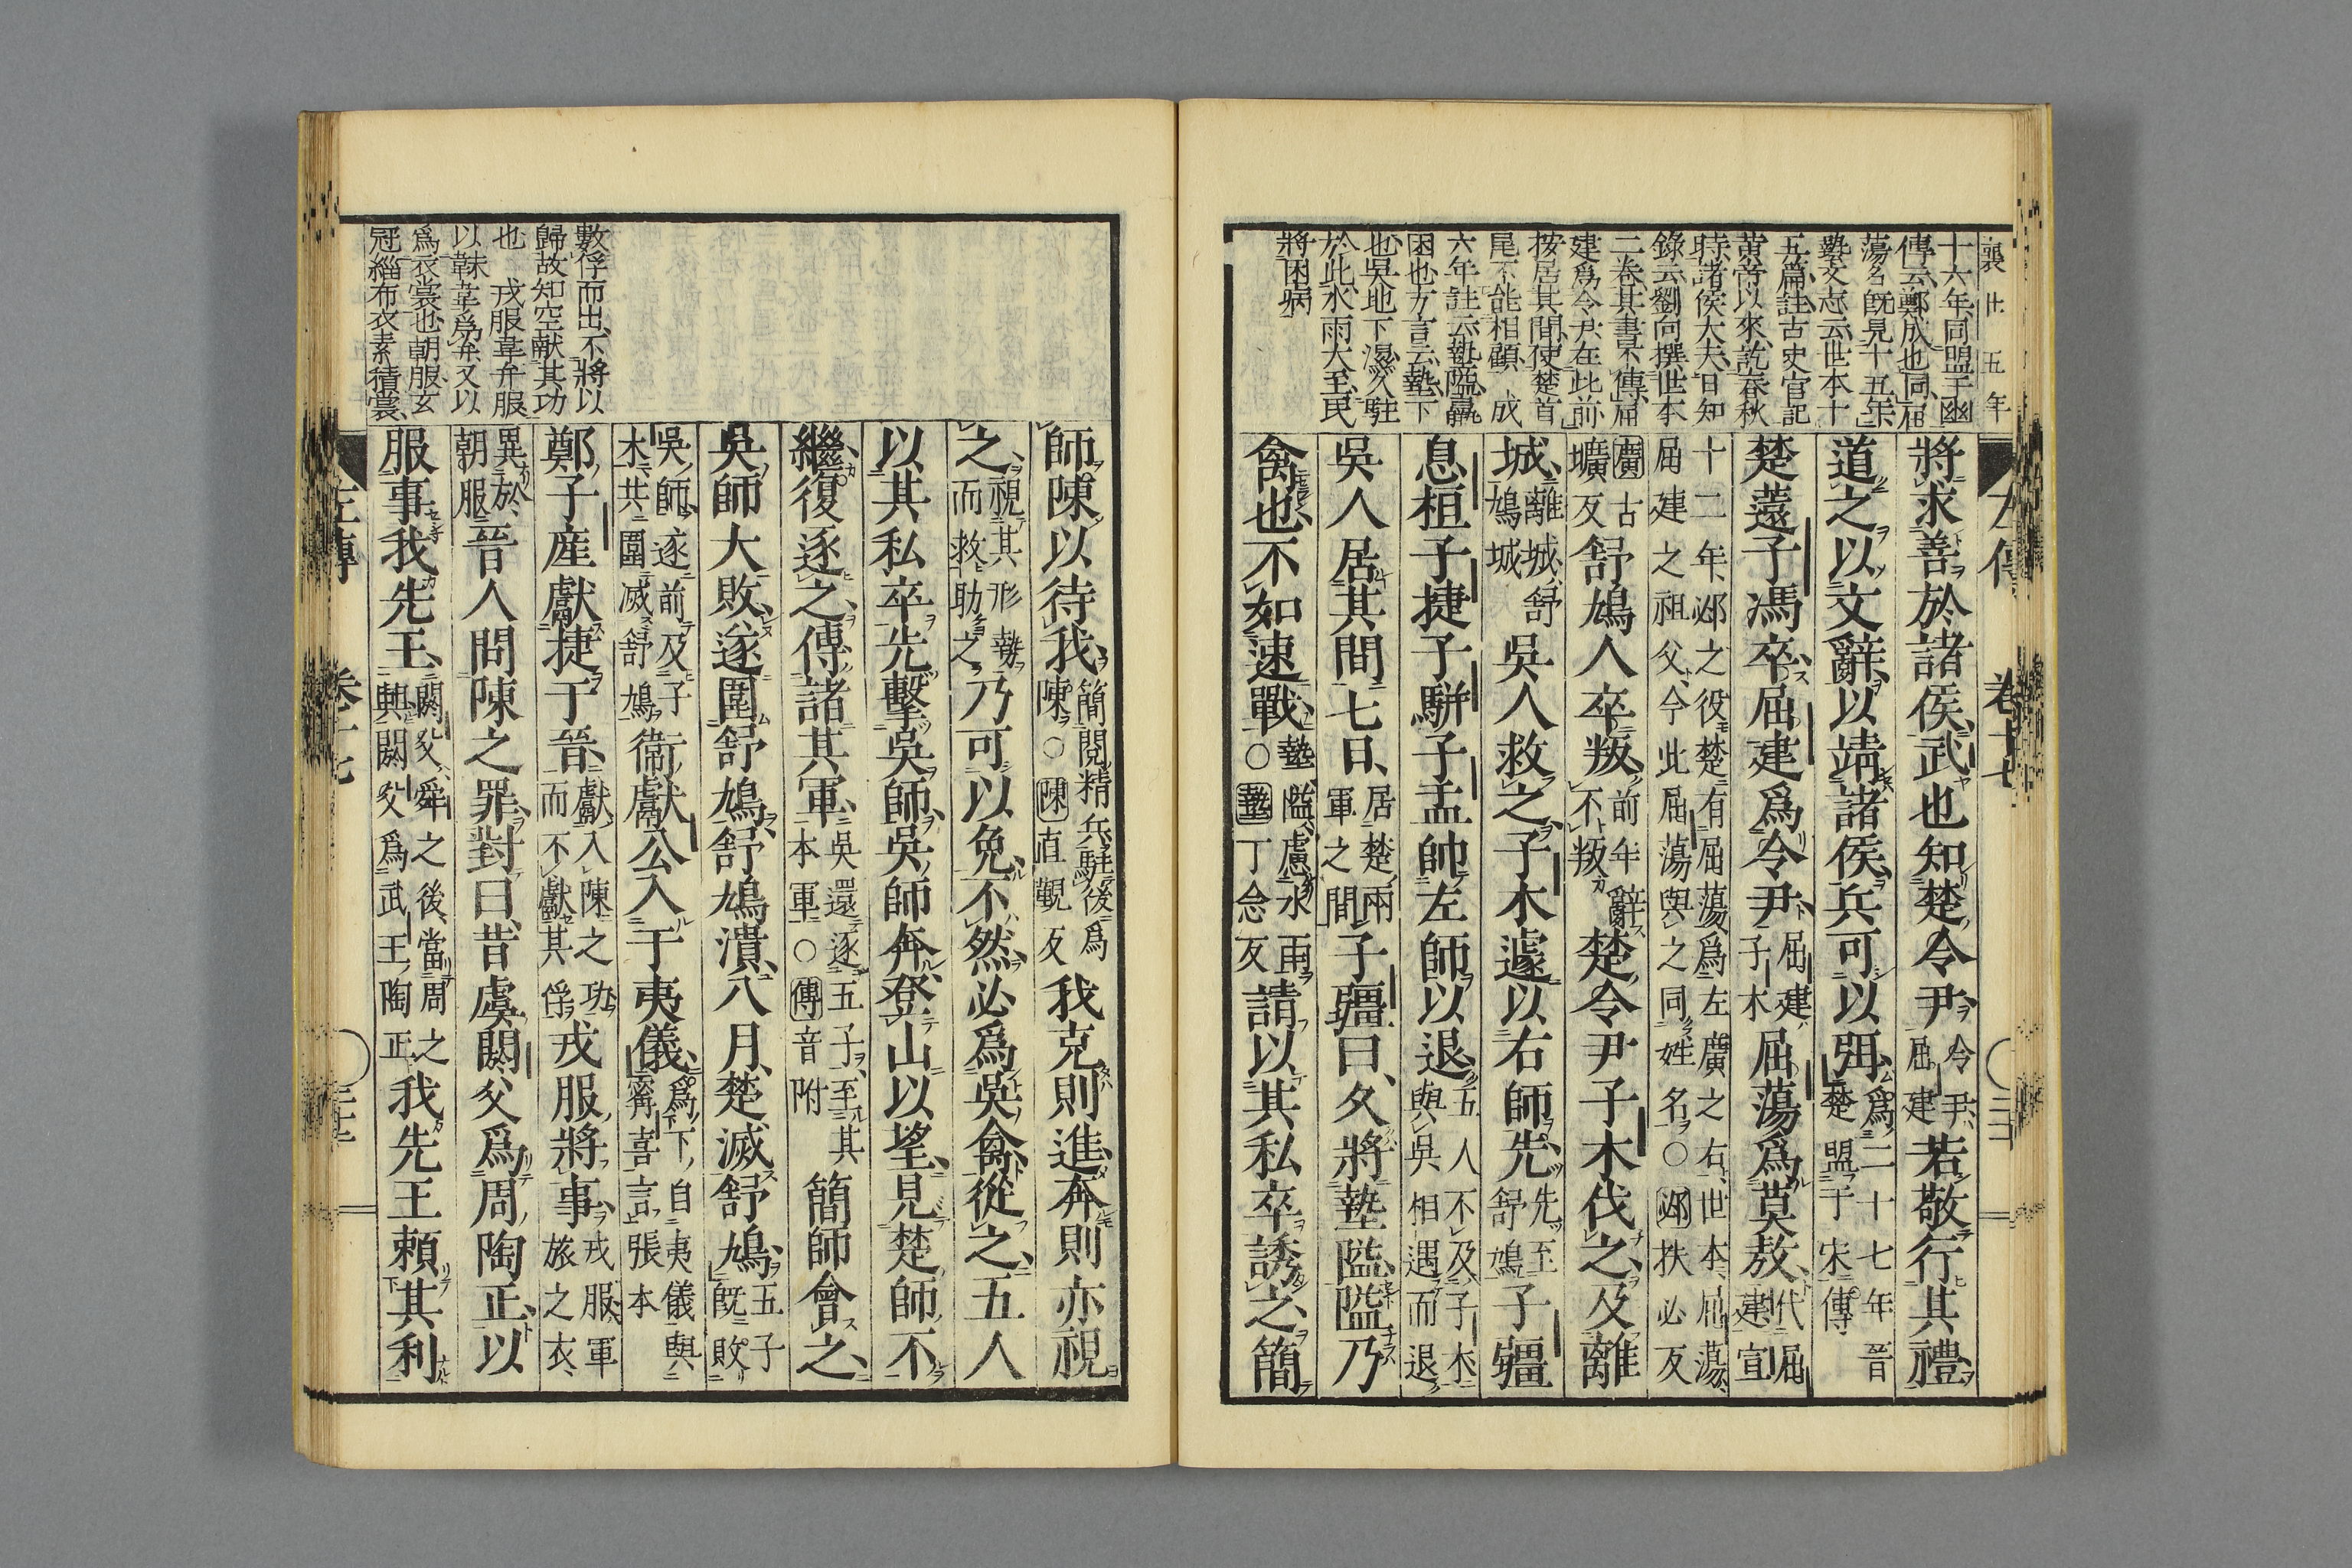 襄廿五年
十六年同盟于幽
傳云鄭成也同屈
蕩名既見十五年
藝文志云世本十
五篇註古史官記
黄帝以來訖春秋
時諸侯大夫曰知
錄云劉向撰世本
二卷其書不傳屈
建爲令尹在此前
按居其間使楚首
尾不能相顧 成
六年註云墊隘羸
困也方言云墊下
也吳地下濕久駐
於此水雨大至民
將困病
將求善於諸侯武也知楚令尹令尹屈建若敬行其禮
道之以文辭以靖諸侯兵可以弭爲二十七年晉楚盟于宋傳
楚薳子馮卒屈建爲令尹屈建子木屈蕩爲莫敖代屈建宣
十二年邲之役楚有屈蕩爲左廣之右世本屈蕩屈建之祖父今此屈蕩與之同姓名○邲扶必反
廣古曠反舒鳩人卒叛前年辭不叛楚令尹子木伐之及離
城離城舒鳩城吳人救之子木遽以右師先先至舒鳩子彊
息桓子捷子駢子孟帥左師以退五人不及子木與吳相遇而退
吳人居其間七日居楚兩軍之間子彊曰久將墊隘隘乃
禽也不如速戰墊隘慮水雨○墊丁念反請以其私卒誘之簡
師陳以待我簡閱精兵駐後爲陳○陳直覲反我克則進奔則亦視
之視其形勢而救助之乃可以免不然必爲吳禽從之五人
以其私卒先擊吳師吳師奔登山以望見楚師不
繼復逐之傅諸其軍吳還逐五子至其本軍○傅音附簡師會之
吳師大敗遂圍舒鳩舒鳩潰八月楚滅舒鳩五子既敗
吳師遂前及子木共圍滅舒鳩衞獻公入于夷儀爲下自夷儀與甯喜言張本
鄭子産獻捷于晉獻入陳之功而不獻其俘戎服將事戎服軍旅之衣
異於朝服晉人問陳之罪對曰昔虞閼父爲周陶正以
服事我先王閼父舜之後當周之興閼父爲武王陶正我先王賴其利
數俘而出不將以
歸故知空献其功
也 戎服韋弁服
以靺韋爲弁又以
爲衣裳也朝服玄
冠緇布衣素積裳